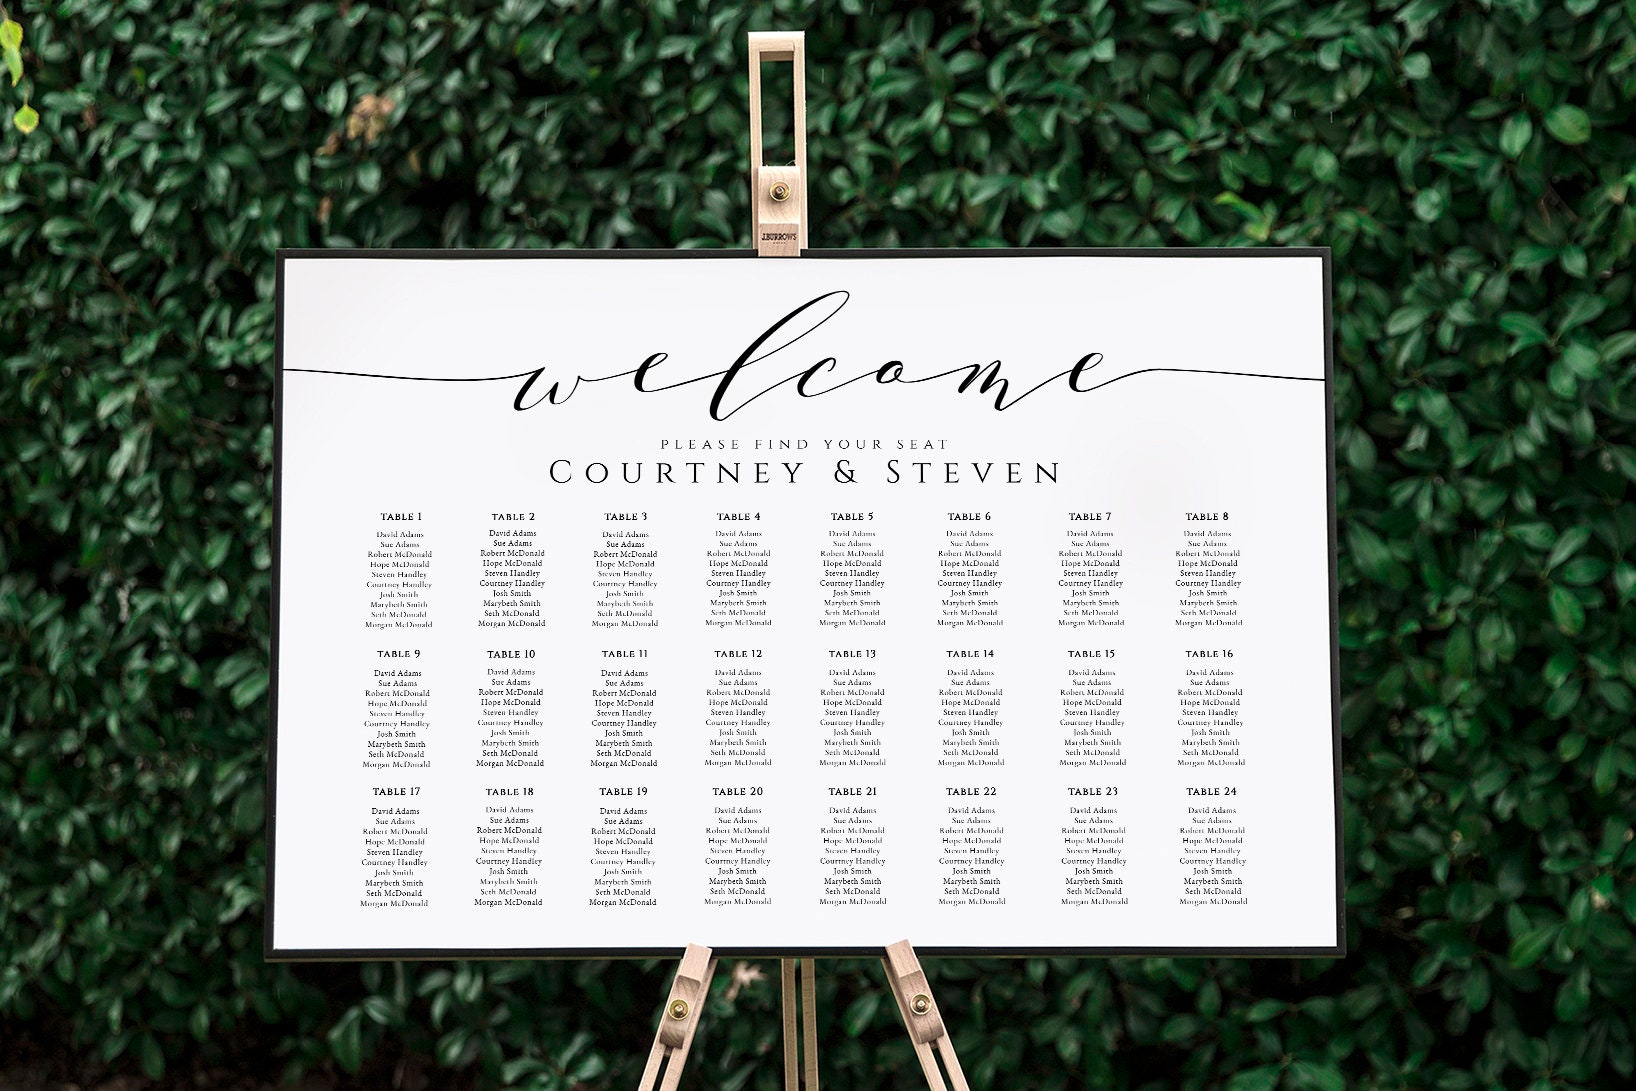 J.BURROWS
welcome
PLEASE FIND YOUR SEAT
COURTNEY & STEVEN
TABLE 1
David Adams
Sue Adams
Robert McDonald
Hope McDonald
Steven Handley
Courtney Handley
Josh Smith
Marybeth Smith
Seth McDonald
Morgan McDonald
TABLE 2
David Adams
Sue Adams
Robert McDonald
Hope McDonald
Steven Handley
Courtney Handley
Josh Smith
Marybeth Smith
Seth McDonald
Morgan McDonald
TABLE 3
David Adams
Sue Adams
Robert McDonald
Hope McDonald
Steven Handley
Courtney Handley
Josh Smith
Marybeth Smith
Seth McDonald
Morgan McDonald
TABLE 4
David Adams
Sue Adams
Robert McDonald
Hope McDonald
Steven Handley
Courtney Handley
Josh Smith
Marybeth Smith
Seth McDonald
Morgan McDonald
TABLE 5
David Adams
Sue Adams
Robert McDonald
Hope McDonald
Steven Handley
Courtney Handley
Josh Smith
Marybeth Smith
Seth McDonald
Morgan McDonald
TABLE 6
David Adams
Sue Adams
Robert McDonald
Hope McDonald
Steven Handley
Courtney Handley
Josh Smith
Marybeth Smith
Seth McDonald
Morgan McDonald
TABLE 7
David Adams
Sue Adams
Robert McDonald
Hope McDonald
Steven Handley
Courtney Handley
Josh Smith
Marybeth Smith
Seth McDonald
Morgan McDonald
TABLE 8
David Adams
Sue Adams
Robert McDonald
Hope McDonald
Steven Handley
Courtney Handley
Josh Smith
Marybeth Smith
Seth McDonald
Morgan McDonald
TABLE 9
David Adams
Sue Adams
Robert McDonald
Hope McDonald
Steven Handley
Courtney Handley
Josh Smith
Marybeth Smith
Seth McDonald
Morgan McDonald
TABLE 10
David Adams
Sue Adams
Robert McDonald
Hope McDonald
Steven Handley
Courtney Handley
Josh Smith
Marybeth Smith
Seth McDonald
Morgan McDonald
TABLE 11
David Adams
Sue Adams
Robert McDonald
Hope McDonald
Steven Handley
Courtney Handley
Josh Smith
Marybeth Smith
Seth McDonald
Morgan McDonald
TABLE 12
David Adams
Sue Adams
Robert McDonald
Hope McDonald
Steven Handley
Courtney Handley
Josh Smith
Marybeth Smith
Seth McDonald
Morgan McDonald
TABLE 13
David Adams
Sue Adams
Robert McDonald
Hope McDonald
Steven Handley
Courtney Handley
Josh Smith
Marybeth Smith
Seth McDonald
Morgan McDonald
TABLE 14
David Adams
Sue Adams
Robert McDonald
Hope McDonald
Steven Handley
Courtney Handley
Josh Smith
Marybeth Smith
Seth McDonald
Morgan McDonald
TABLE 15
David Adams
Sue Adams
Robert McDonald
Hope McDonald
Steven Handley
Courtney Handley
Josh Smith
Marybeth Smith
Seth McDonald
Morgan McDonald
TABLE 16
David Adams
Sue Adams
Robert McDonald
Hope McDonald
Steven Handley
Courtney Handley
Josh Smith
Marybeth Smith
Seth McDonald
Morgan McDonald
TABLE 17
David Adams
Sue Adams
Robert McDonald
Hope McDonald
Steven Handley
Courtney Handley
Josh Smith
Marybeth Smith
Seth McDonald
Morgan McDonald
TABLE 18
David Adams
Sue Adams
Robert McDonald
Hope McDonald
Steven Handley
Courtney Handley
Josh Smith
Marybeth Smith
Seth McDonald
Morgan McDonald
TABLE 19
David Adams
Sue Adams
Robert McDonald
Hope McDonald
Steven Handley
Courtney Handley
Josh Smith
Marybeth Smith
Seth McDonald
Morgan McDonald
TABLE 20
David Adams
Sue Adams
Robert McDonald
Hope McDonald
Steven Handley
Courtney Handley
Josh Smith
Marybeth Smith
Seth McDonald
Morgan McDonald
TABLE 21
David Adams
Sue Adams
Robert McDonald
Hope McDonald
Steven Handley
Courtney Handley
Josh Smith
Marybeth Smith
Seth McDonald
Morgan McDonald
TABLE 22
David Adams
Sue Adams
Robert McDonald
Hope McDonald
Steven Handley
Courtney Handley
Josh Smith
Marybeth Smith
Seth McDonald
Morgan McDonald
TABLE 23
David Adams
Sue Adams
Robert McDonald
Hope McDonald
Steven Handley
Courtney Handley
Josh Smith
Marybeth Smith
Seth McDonald
Morgan McDonald
TABLE 24
David Adams
Sue Adams
Robert McDonald
Hope McDonald
Steven Handley
Courtney Handley
Josh Smith
Marybeth Smith
Seth McDonald
Morgan McDonald